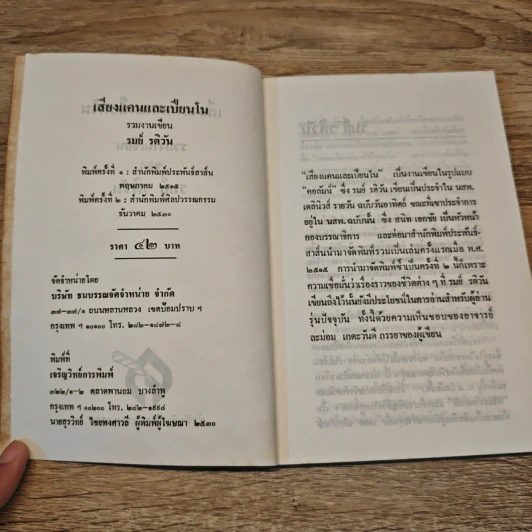 เสียงแคนและเปียนโน
รวมงานเขียน
รมย์ รติวัน
พิมพ์ครั้งที่ ๑ : สำนักพิมพ์ประพันธ์สาส์น
พฤษภาคม ๒๕๑๕
พิมพ์ครั้งที่ ๒ : สำนักพิมพ์ศิลปวรรณกรรม
ธันวาคม ๒๕๓๐
ราคา ๔๒ บาท
จัดจำหน่ายโดย
บริษัท ธนบรรณจัดจำหน่าย จำกัด
ถนนหลานหลวง เขตป้อมปราบ ฯ
กรุงเทพ ฯ ๑๐๑๐๐ โทร.
พิมพ์ที่
เจริญวิทย์การพิมพ์
๓๒๒/๑-๒ ตลาดพานถม บางลำพู
กรุงเทพ ฯ ๑๐๒๐๐ โทร.
นายสุรวิทย์ ไชยพงศาวลี ผู้พิมพ์ผู้โฆษณา ๒๕๓๐
"เสียงแคนและเปียนโน" เป็นงานเขียนในรูปแบบ
"คอลัมน์" ซึ่ง รมย์ รติวัน เขียนเป็นประจำใน นสพ.
เดลินิวส์ รายวัน ฉบับวันอาทิตย์ ขณะที่เขาประจำการ
อยู่ใน นสพ. ฉบับนั้น ซึ่ง สนิท เอกชัย เป็นหัวหน้า
กองบรรณาธิการ และต่อมาสำนักพิมพ์ประพันธ์-
สาส์นนำมาจัดพิมพ์รวมเป็นเล่มครั้งแรกเมื่อ พ.ศ.
๒๕๑๕ การนำมาจัดพิมพ์ซ้ำเป็นครั้งที่ ๒ นี้ก็เพราะ
ความเชื่อมั่นว่าเรื่องราวของชีวิตต่าง ๆ ที่ รมย์ รติวัน
เขียนถึงไว้นั้นยังมีประโยชน์ในการอ่านสำหรับผู้อ่าน
รุ่นปัจจุบัน ทั้งนี้ด้วยความเห็นชอบของอาจารย์
ละม่อม เกตะวันดี ภรรยาของผู้เขียน